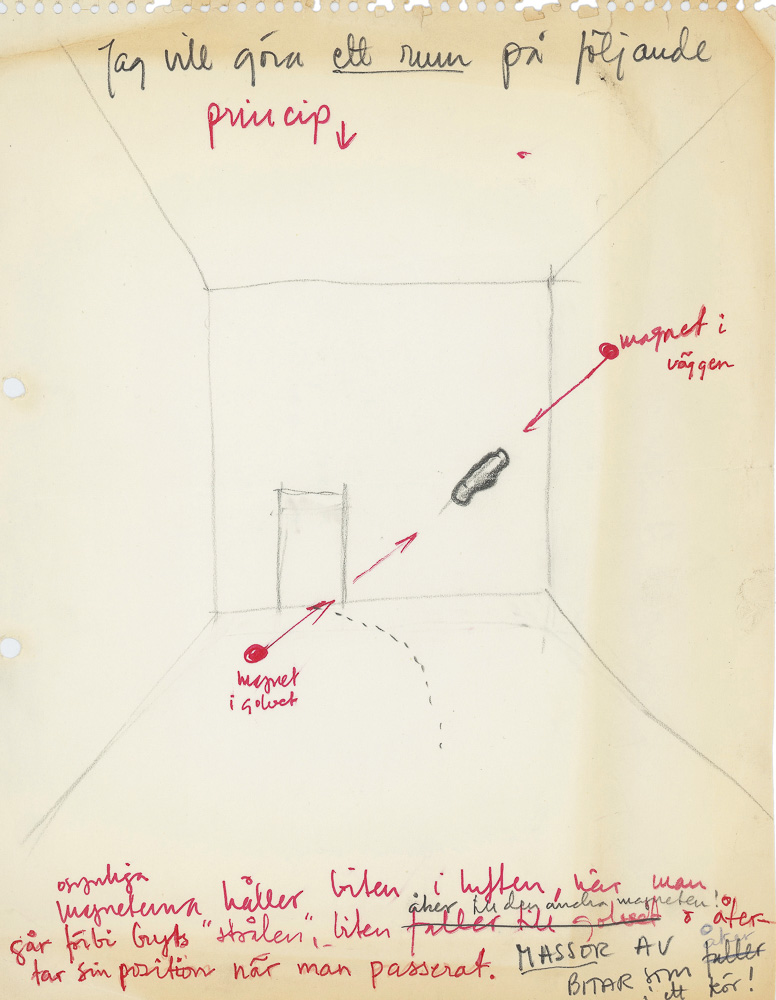 Jag vill göra ett rum på följande
princip ↓
magnet i
väggen
magnet
i golvet
osynliga
magneterna håller biten i luften, när man
åker till den andra magneten!
går förbi bryts "strålen", biten faller till golvet o åter-
tar sin position när man passerat.
MASSOR AV
åker
faller
BITAR som
i ett kör!